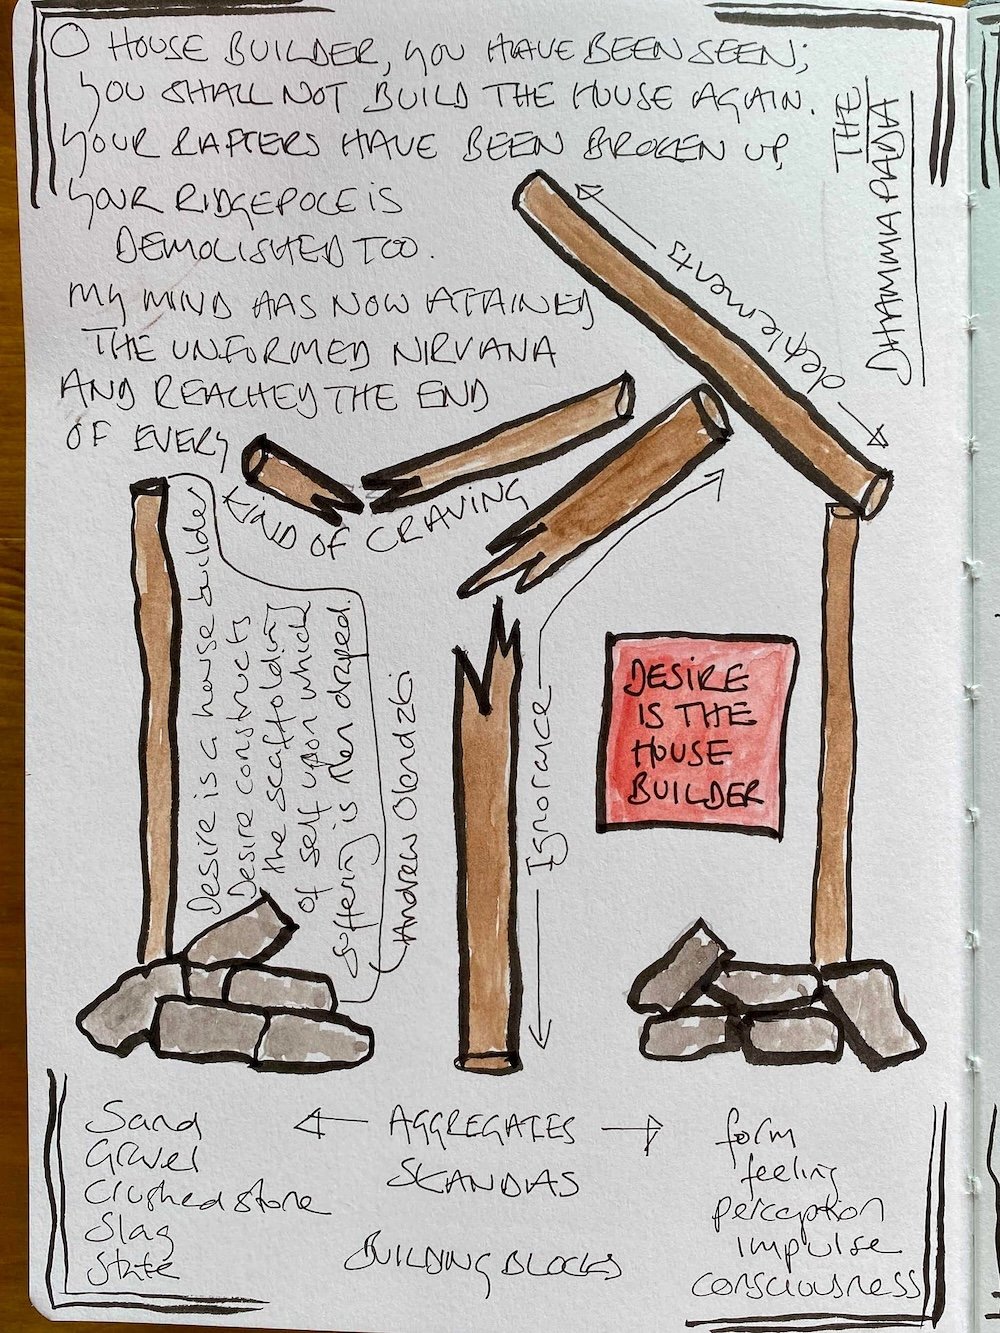 O HOUSE BUILDER, YOU HAVE BEEN SEEN;
YOU SHALL NOT BUILD THE HOUSE AGAIN.
YOUR RAFTERS HAVE BEEN BROKEN UP,
YOUR RIDGEPOLE IS
DEMOLISHED TOO.
MY MIND HAS NOW ATTAINED
THE UNFORMED NIRVANA
AND REACHED THE END
OF EVERY
KIND OF CRAVING
THE
DHAMMAPADA
defilements
Desire is a house builder
Desire constructs
the scaffolding
of self upon which
suffering is then draped.
Andrew Olendzki.
Ignorance
DESIRE
IS THE
HOUSE
BUILDER
Sand
Gravel
Crushed stone
Slag
Slate
AGGREGATES
SKANDAS
BUILDING BLOCKS
form
feeling
perception
impulse
consciousness